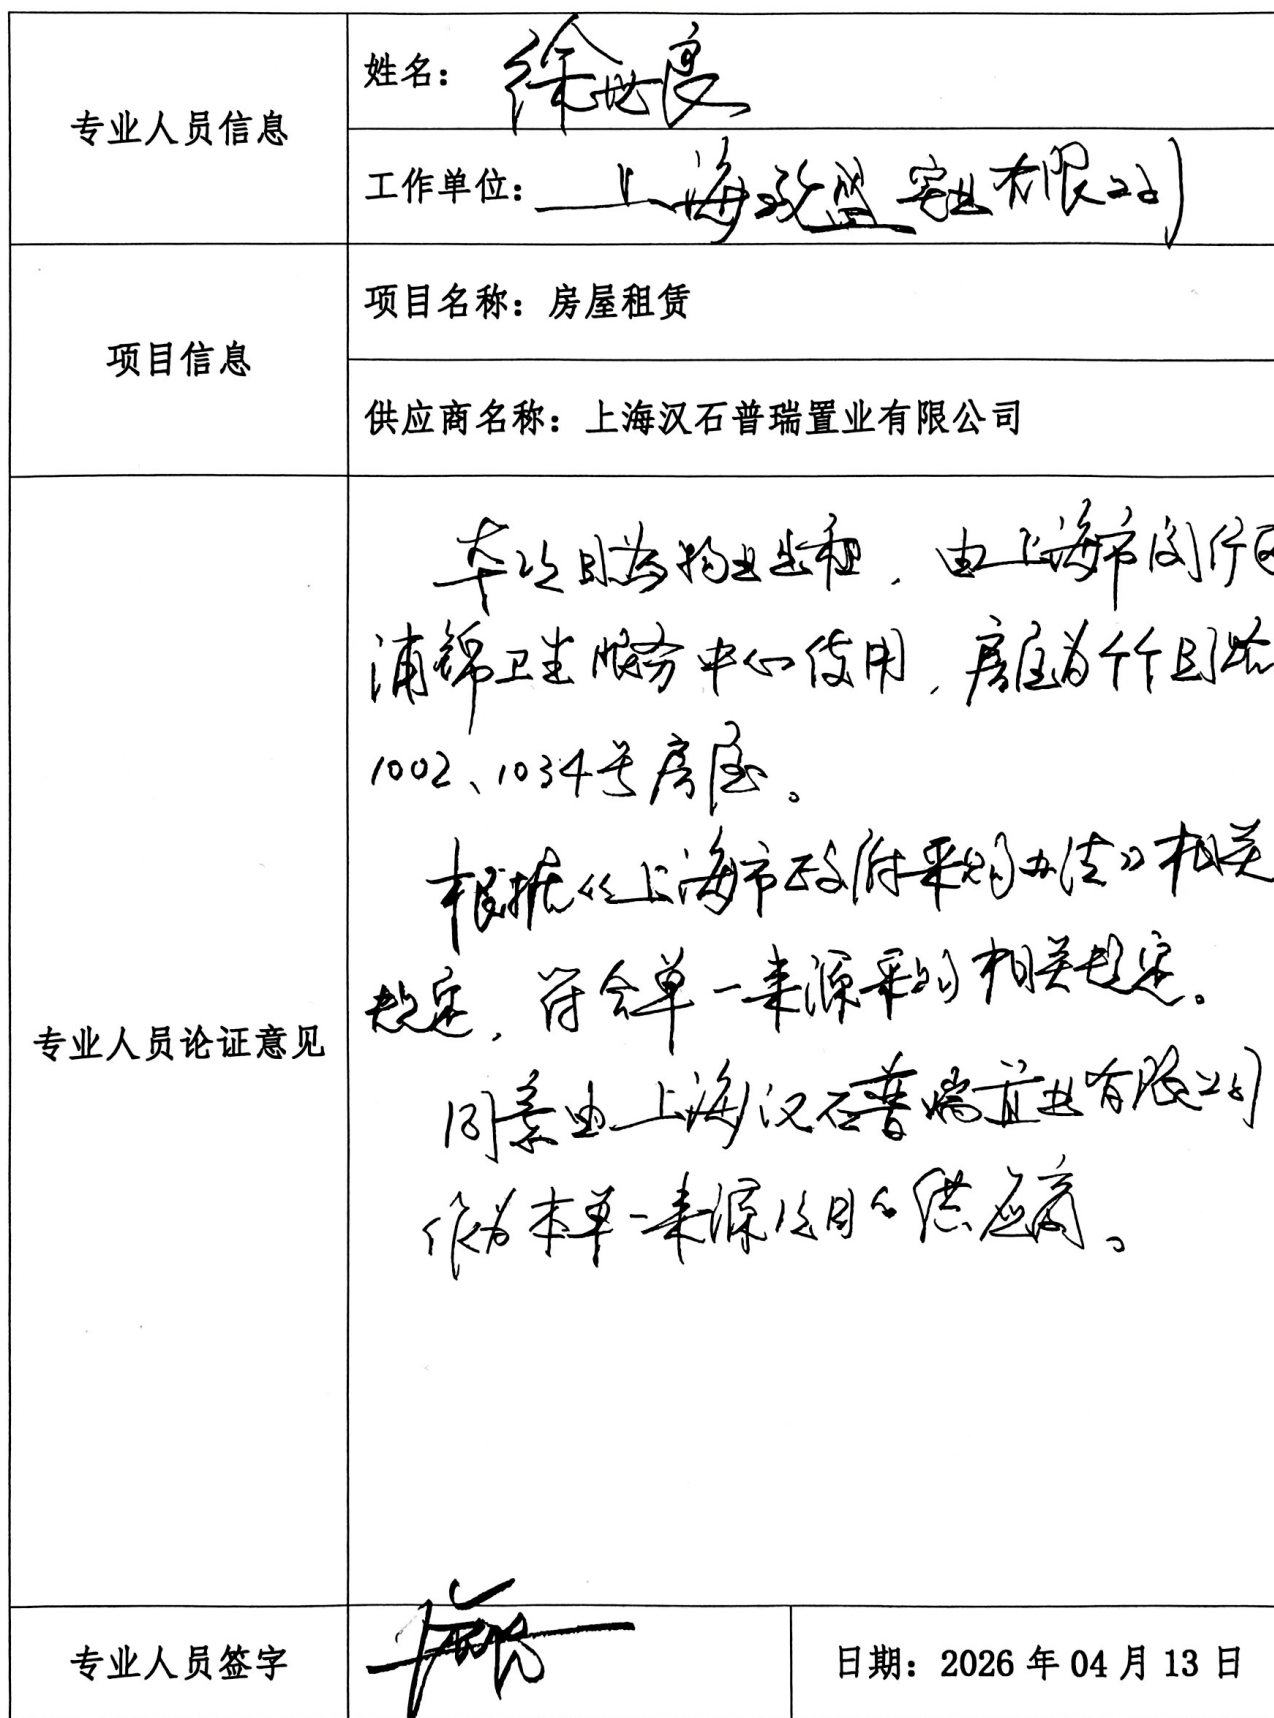 专业人员信息
姓名：徐世良
工作单位：上海 实业有限公司
项目信息
项目名称：房屋租赁
供应商名称：上海汉石普瑞置业有限公司
专业人员论证意见
本项目为物业出租，由上海市闵行区
浦锦卫生服务中心使用，房屋为 路
1002、1034号房屋。
根据《上海市政府采购办法》相关
规定，符合单一来源采购相关规定。
同意由上海汉石普瑞置业有限公司
作为本单一来源项目的供应商。
专业人员签字
日期：2026年04月13日